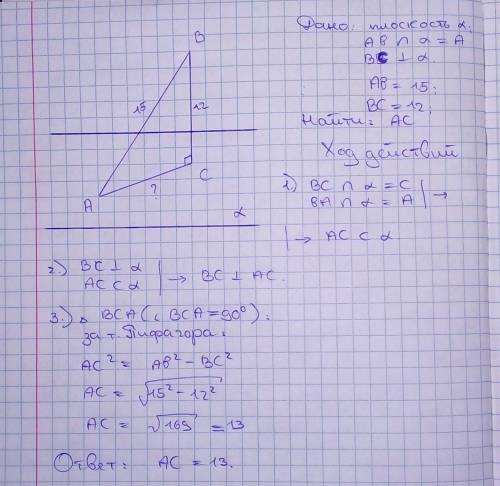 Дано: плоскость α;
AB ∩ α = A
BC ⊥ α.
AB = 15;
BC = 12;
Найти: AC
Ход действий
B
15
12
C
A
?
α
1) BC ∩ α = C
BA ∩ α = A | →
| → AC ⊂ α
2.) BC ⊥ α
AC ⊂ α | → BC ⊥ AC.
3.) в BCA (∟BCA = 90°):
за т. Пифагора:
AC² = AB² - BC²
AC = √15² - 12²
AC = √169 = 13
Ответ: AC = 13.